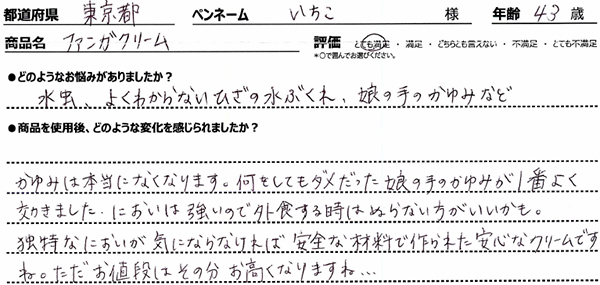 都道府県 東京都 ペンネーム いちこ 様 年齢 43 歳
商品名 ファンガクリーム 評価 とても満足 ・ 満足 ・ どちらとも言えない ・ 不満足 ・ とても不満足
*○で囲んでお選びください。
●どのようなお悩みがありましたか？
水虫、よくわからないひざの水ぶくれ、娘の手のかゆみなど
●商品を使用後、どのような変化を感じられましたか？
かゆみは本当になくなります。何をしてもダメだった娘の手のかゆみが1番よく
効きました。においは強いので外食する時はぬらない方がいいかも。
独特なにおいが気にならなければ安全な材料で作られた安心なクリームです
ね。ただお値段はその分お高くなりますね…